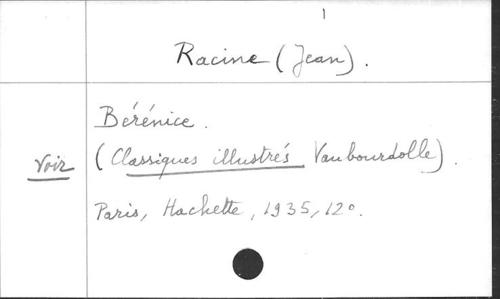 1
Racine (Jean).
Bérénice.
Voir
(Classiques illustrés Vaubourdolle).
Paris, Hachette, 1935, 12º.